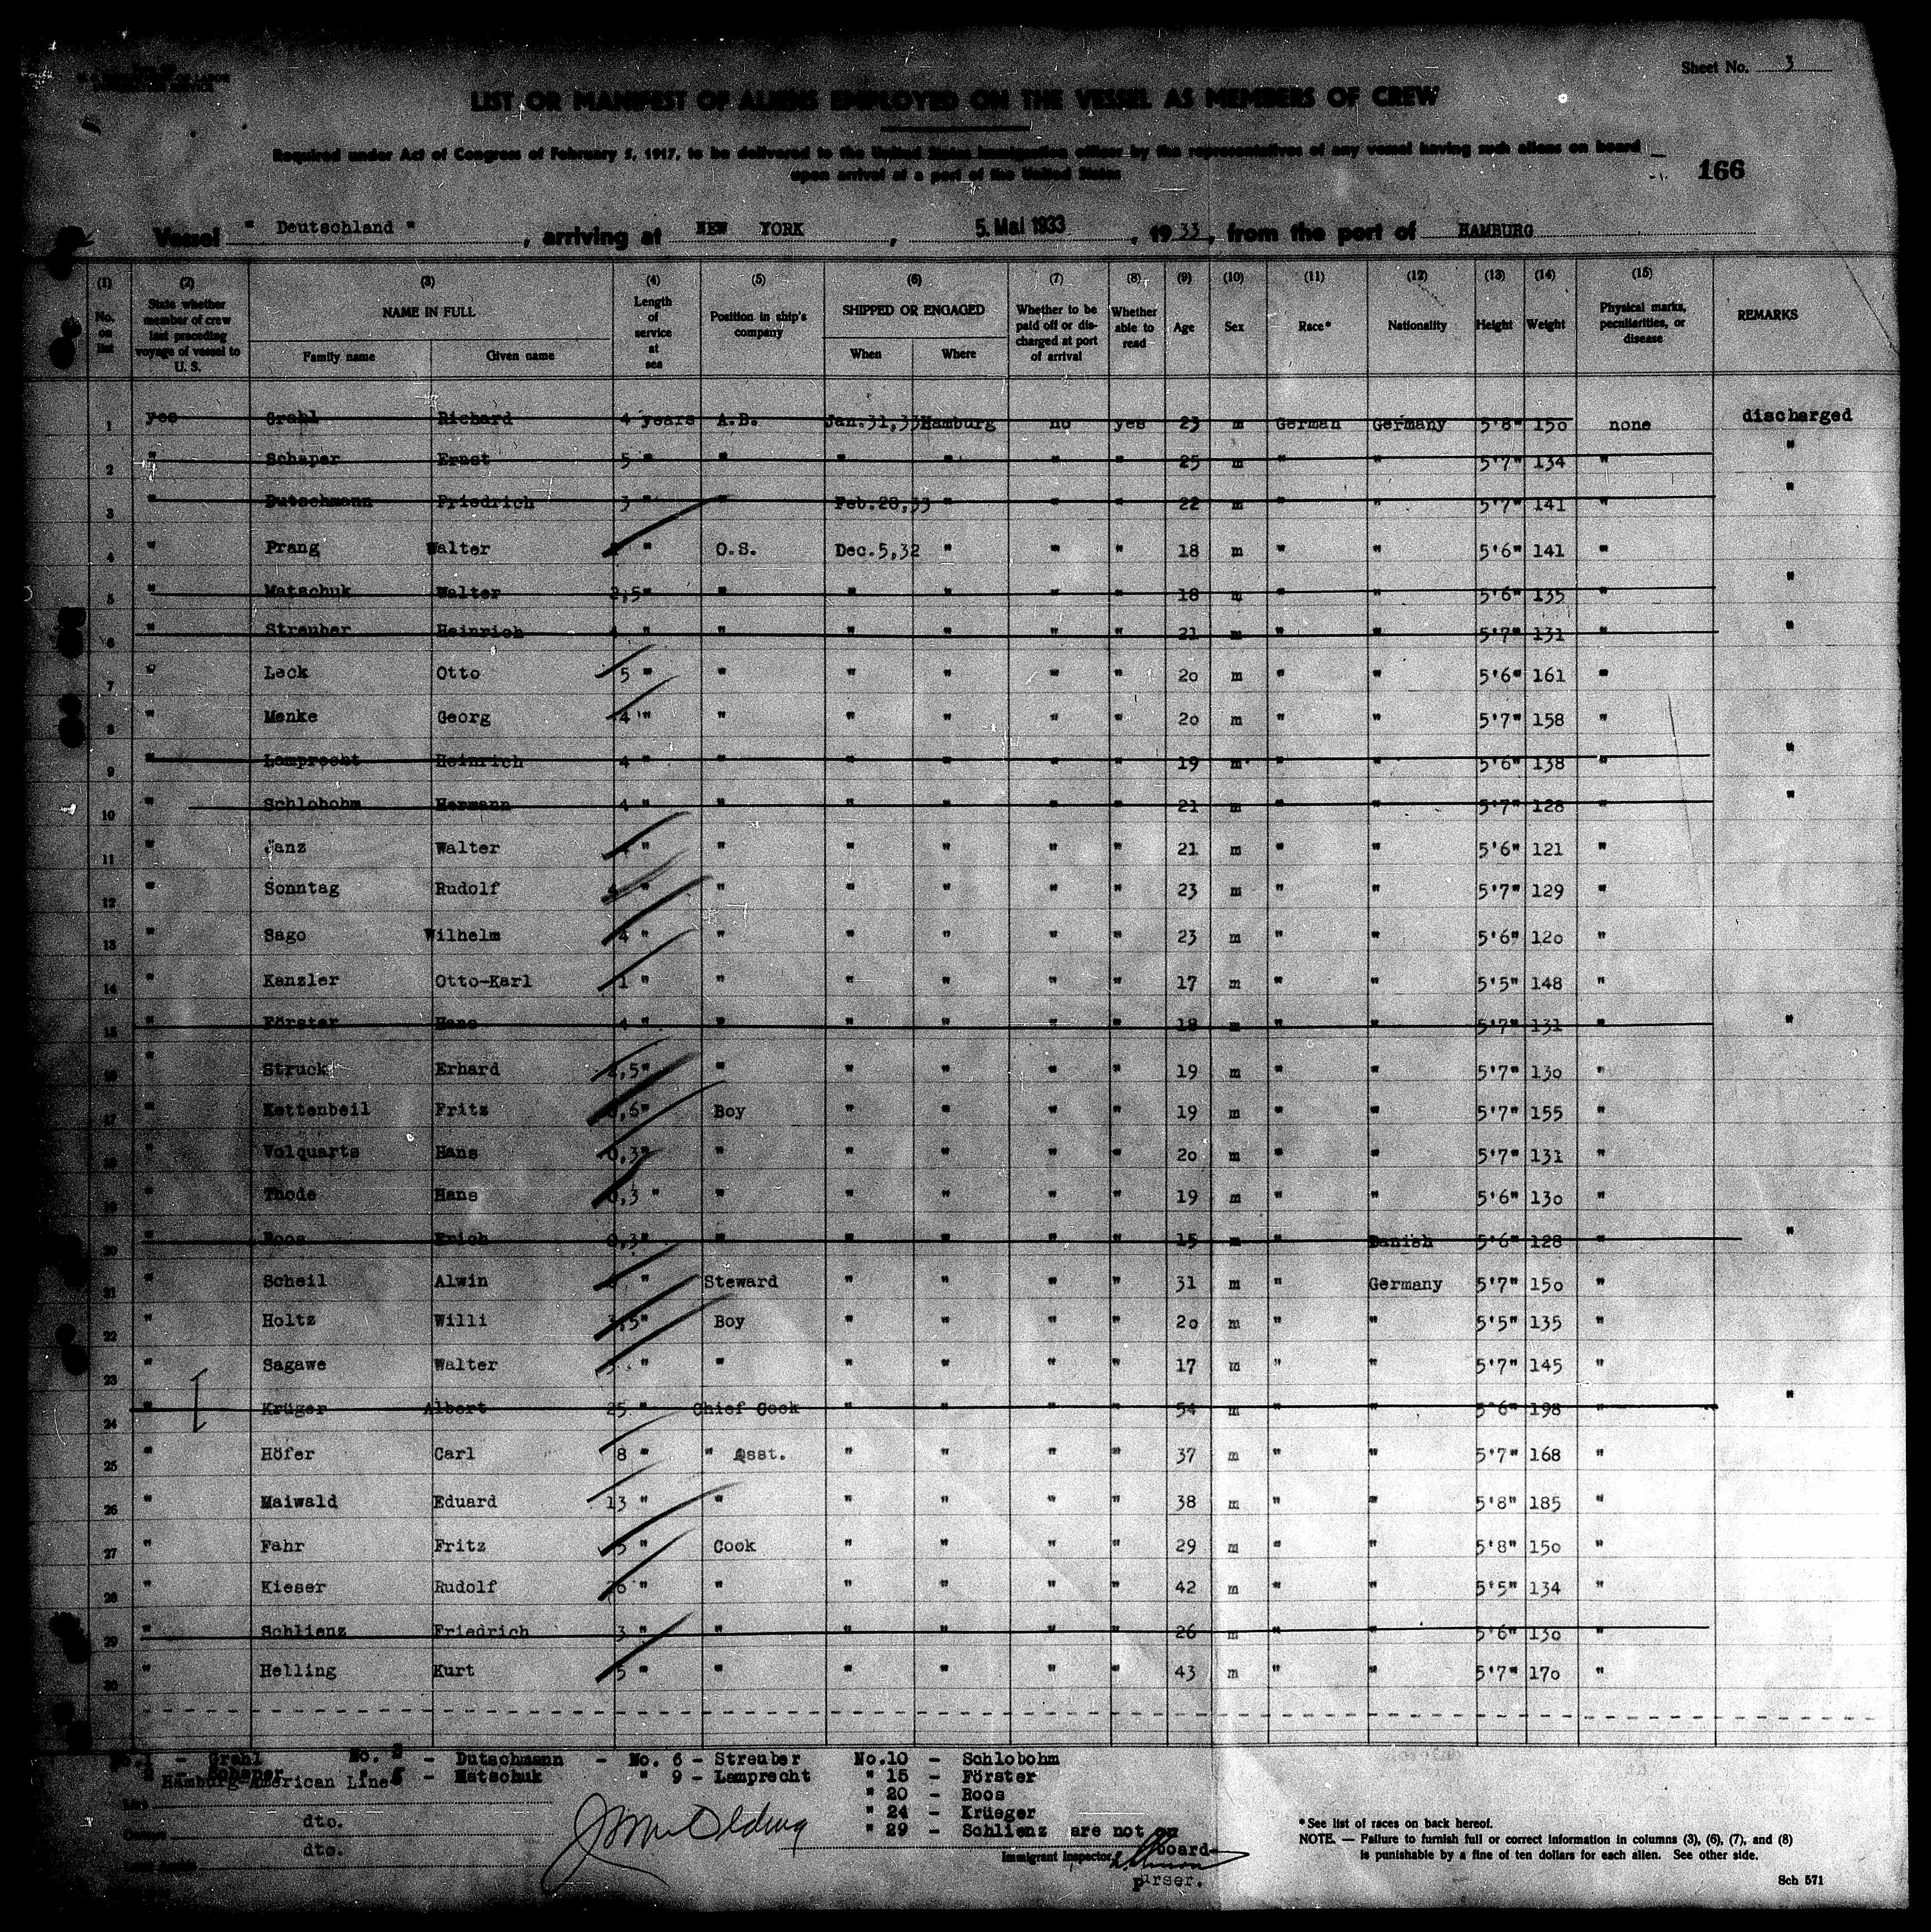 Sheet No. 3
LIST OR MANIFEST OF ALIENS EMPLOYED ON THE VESSEL AS MEMBERS OF CREW
Required under Act of Congress of February 5, 1917, to be delivered to the United States immigration officer by the representatives of any vessel having such aliens on board
upon arrival at a port of the United States
166
Vessel " Deutschland ", arriving at NEW YORK, 5. Mai 1933, 1933, from the port of HAMBURG
(1) (2) (3) (4) (5) (6) (7) (8) (9) (10) (11) (12) (13) (14) (15)
No. on list State whether member of crew last preceding voyage of vessel to U. S. NAME IN FULL Family name Given name Length of service at sea Position in ship's company SHIPPED OR ENGAGED When Where Whether to be paid off or discharged at port of arrival Whether able to read Age Sex Race* Nationality Height Weight Physical marks, peculiarities, or disease REMARKS
1 yes Grahl Richard 4 years A.B. Jan.31,33 Hamburg no yes 23 m German Germany 5'8" 150 none discharged
2 " Schaper Ernst 5 " " " " " " 25 m " " 5'7" 134 " "
3 " Dutschmann Friedrich 3 " " Feb.28,33 " " " 22 m " " 5'7" 141 " "
4 " Prang Walter " O.S. Dec.5,32 " " " 18 m " " 5'6" 141 "
5 " Matschuk Walter 2,5" " " " " " 18 m " " 5'6" 135 " "
6 " Streuber Heinrich 4 " " " " " " 21 m " " 5'7" 131 " "
7 " Leck Otto 5 " " " " " " 20 m " " 5'6" 161 "
8 " Menke Georg 4 " " " " " " 20 m " " 5'7" 158 "
9 " Lamprecht Heinrich 4 " " " " " " 19 m " " 5'6" 138 " "
10 " Schlobohm Hermann 4 " " " " " " 21 m " " 5'7" 128 " "
11 " Janz Walter 4 " " " " " " 21 m " " 5'6" 121 "
12 " Sonntag Rudolf " " " " " " 23 m " " 5'7" 129 "
13 " Sago Wilhelm 4 " " " " " " 23 m " " 5'6" 120 "
14 " Kanzler Otto-Karl 1 " " " " " " 17 m " " 5'5" 148 "
15 " Förster Hans 4 " " " " " " 18 m " " 5'7" 131 " "
16 " Struck Erhard ,5" " " " " " 19 m " " 5'7" 130 "
17 " Kettenbeil Fritz ,6" Boy " " " " 19 m " " 5'7" 155 "
18 " Volquarts Hans 0,3" " " " " " 20 m " " 5'7" 131 "
19 " Thode Hans 0,3 " " " " " " 19 m " " 5'6" 130 "
20 " Roos Erich 0,3" " " " " " 15 m " Danish 5'6" 128 " "
21 " Scheil Alwin " Steward " " " " 31 m " Germany 5'7" 150 "
22 " Holtz Willi ,5" Boy " " " " 20 m " " 5'5" 135 "
23 " Sagawe Walter " " " " " " 17 m " " 5'7" 145 "
24 " Krüger Albert 25 " Chief Cook " " " " 54 m " " 5'6" 198 " "
25 " Höfer Carl 8 " " Asst. " " " " 37 m " " 5'7" 168 "
26 " Maiwald Eduard 13 " " " " " " 38 m " " 5'8" 185 "
27 " Fahr Fritz 5 " Cook " " " " 29 m " " 5'8" 150 "
28 " Kieser Rudolf 26 " " " " " " 42 m " " 5'5" 134 "
29 " Schlienz Friedrich 3 " " " " " " 26 m " " 5'6" 130 "
30 " Helling Kurt 5 " " " " " " 43 m " " 5'7" 170 "
No.1 - Grahl No. 3 - Dutschmann - No. 6 - Streuber No.10 - Schlobohm
2 - Schaper " 5 - Matschuk " 9 - Lamprecht " 15 - Förster
Hamburg-American Line
" 20 - Roos
dto.
" 24 - Krüeger
" 29 - Schlienz are not on
board.
dto.
Immigrant Inspector
purser.
* See list of races on back hereof.
NOTE. — Failure to furnish full or correct information in columns (3), (6), (7), and (8)
is punishable by a fine of ten dollars for each alien. See other side.
Sch 571